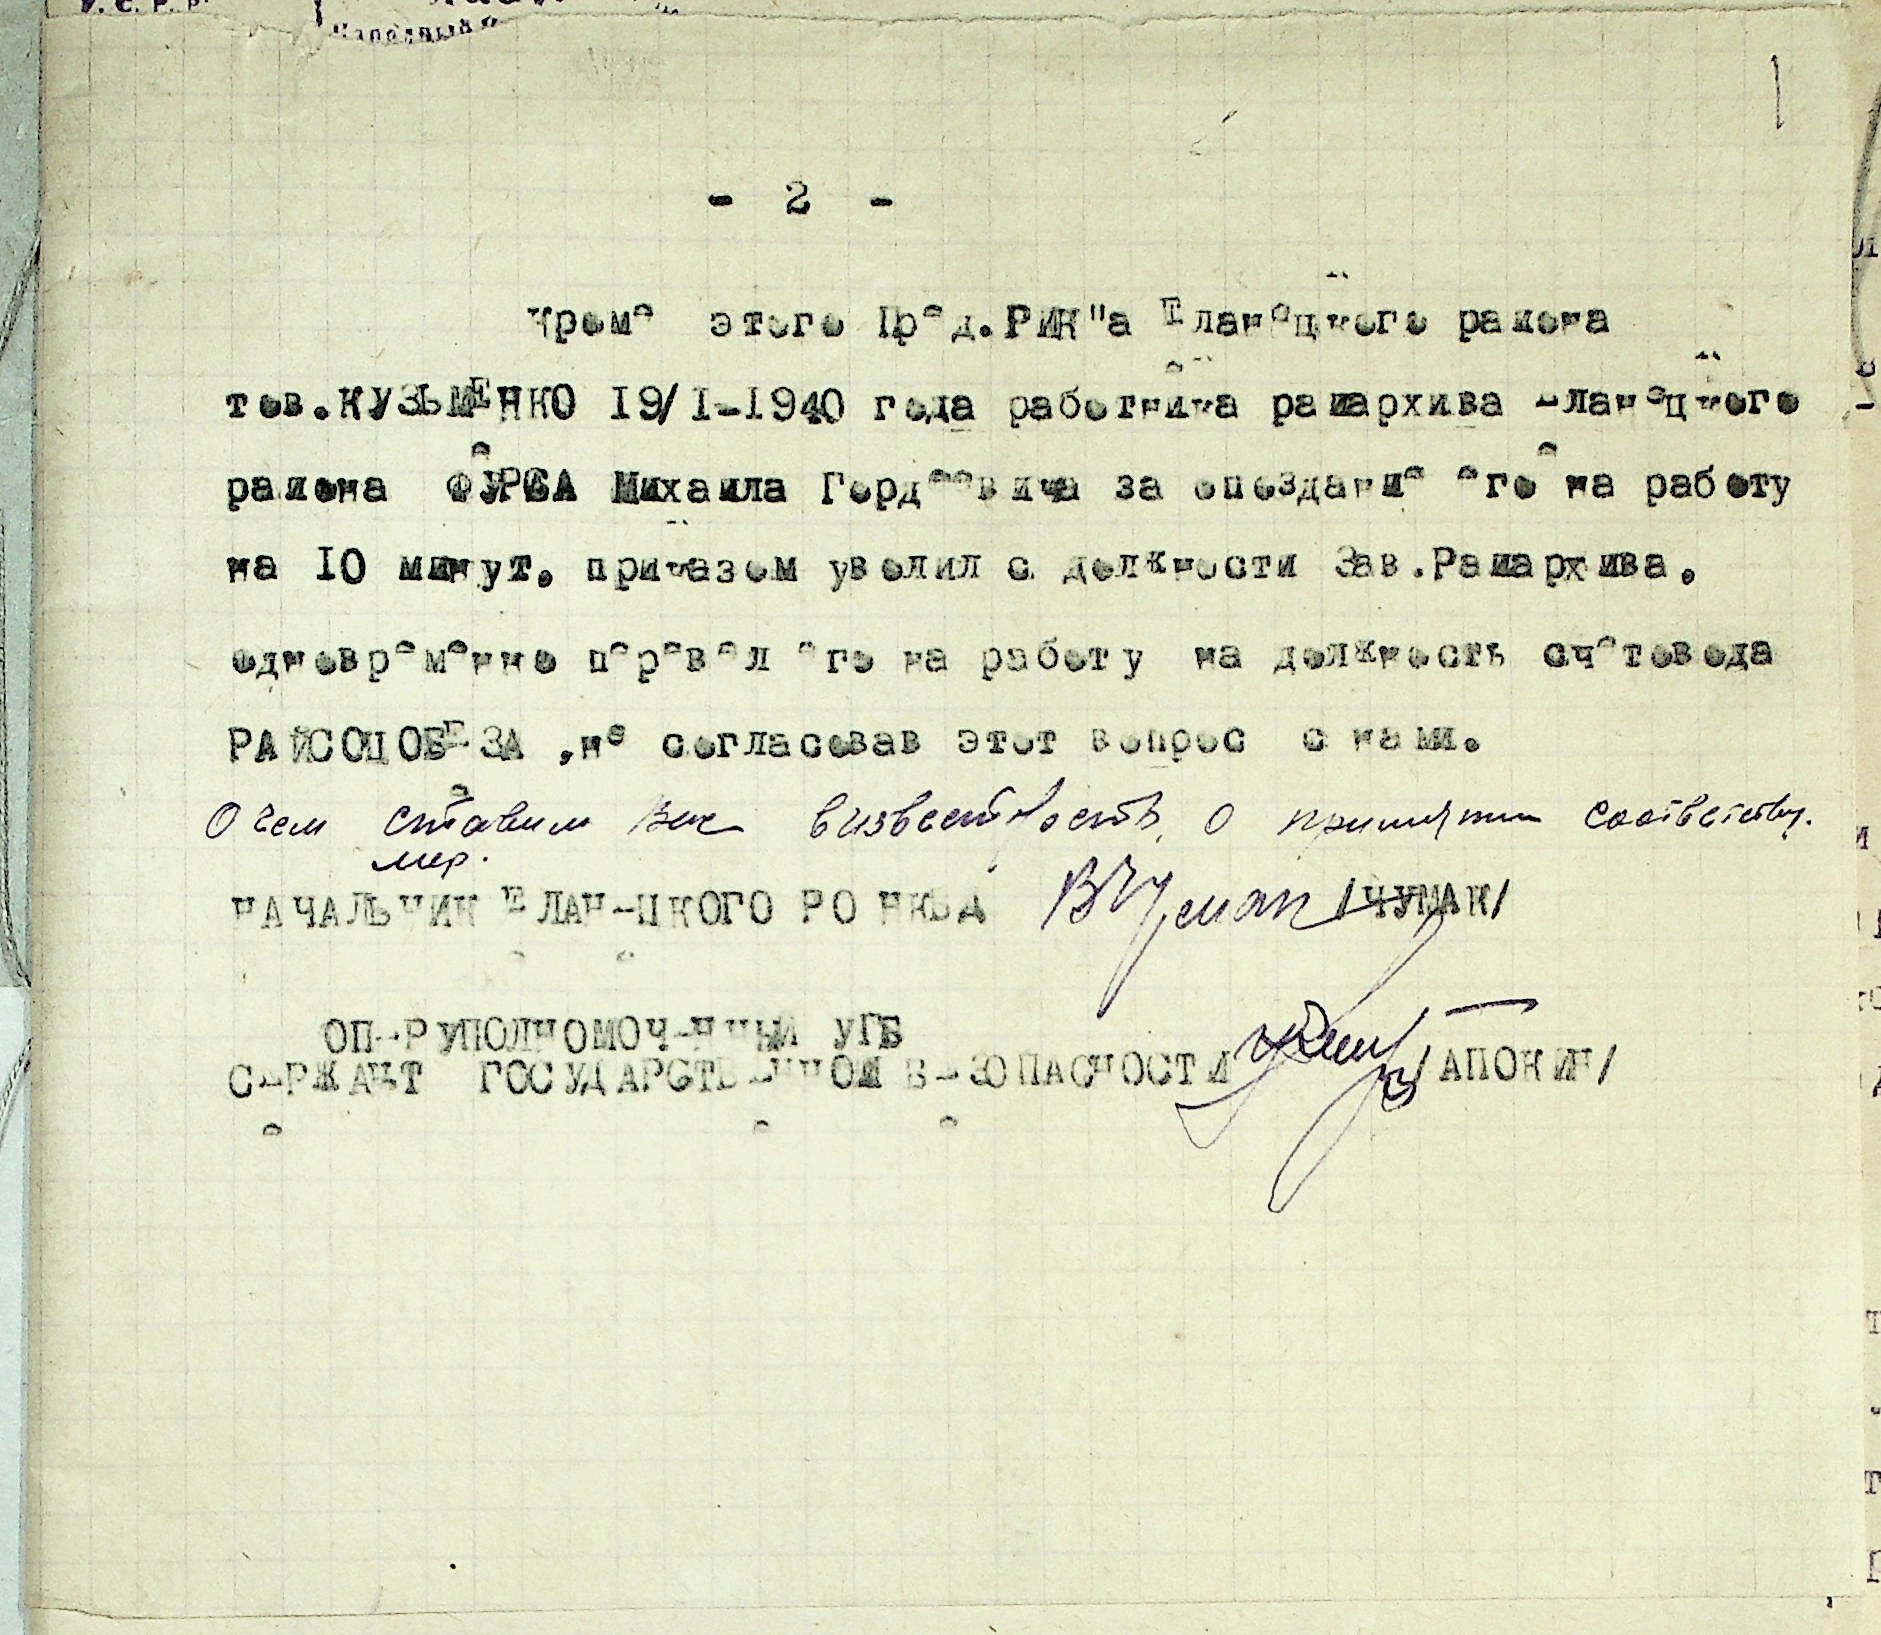 У. С. Р. Р.
- 2 -
Кроме этого Пред.РИК"а Еланецкого района
тов.КУЗЬМЕНКО 19/I-1940 года работника райархива Еланецкого
района ФУРСА Михаила Гордеевича за опоздание его на работу
на 10 минут. приказом уволил с должности Зав.Райархива.
одновременно перевел его на работу на должность счетовода
РАЙСОЦОБЕЗА ,не согласовав этот вопрос с нами.
О чем ставим Вас визвестность, о принятии соотвстству.
мер.
НАЧАЛЬНИК ЕЛАНЕЦКОГО РО НКВД ВЧуман /ЧУМАК/
ОПЕРУПОЛНОМОЧЕННЫЙ УГБ
СЕРЖАНТ ГОСУДАРСТВЕННОЙ БЕЗОПАСНОСТИ /АПОКИН/